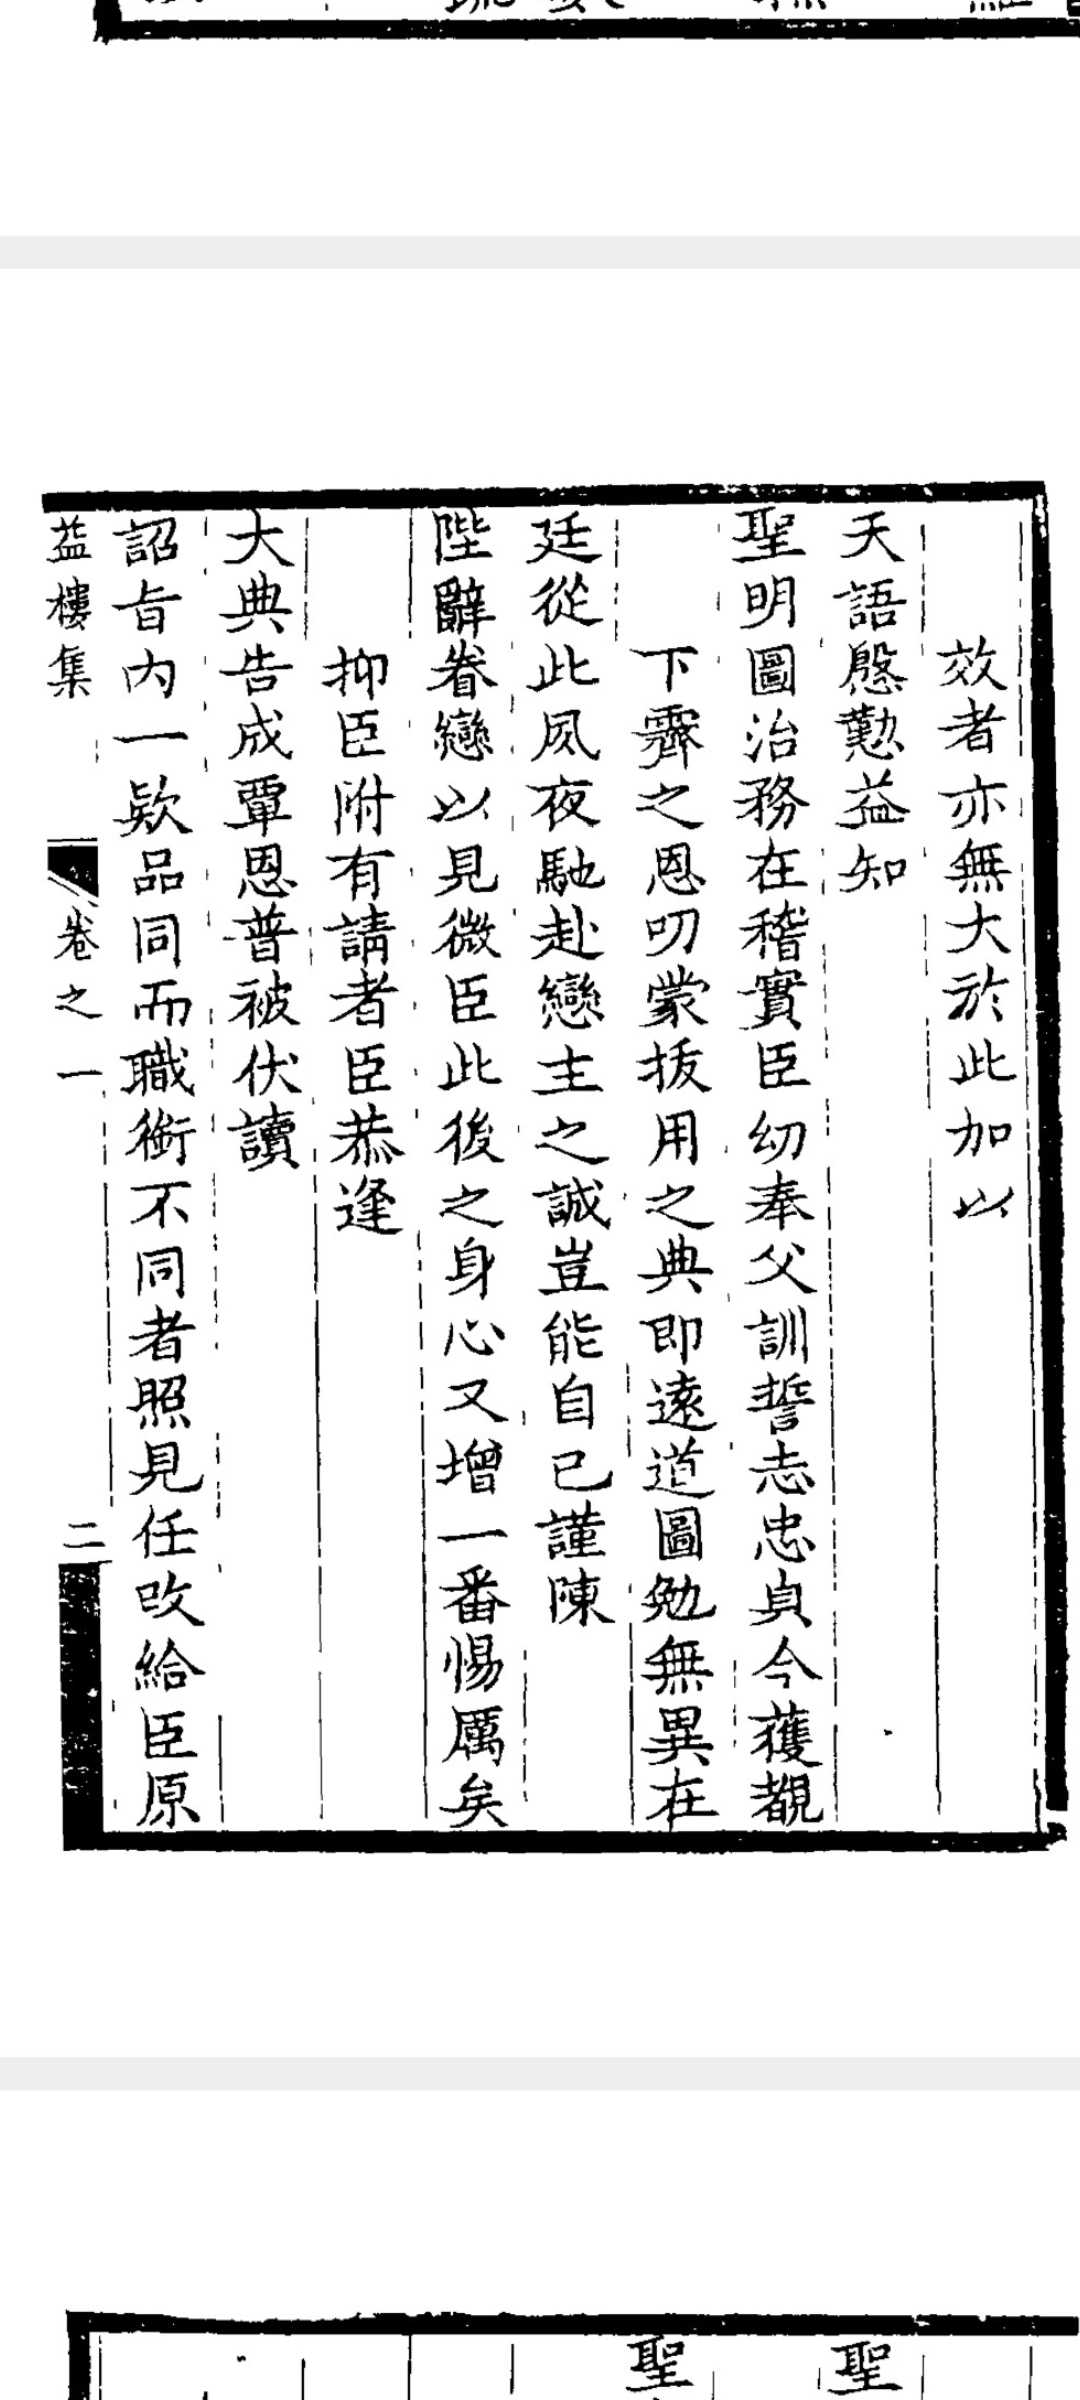 效者亦無大於此加以
天語慇懃益知
聖明圖治務在稽實臣幼奉父訓誓志忠貞今獲覩
下霽之恩叨蒙拔用之典即遠道圖勉無異在
廷從此夙夜馳赴戀主之誠豈能自已謹陳
陛辭眷戀以見微臣此後之身心又增一番惕厲矣
抑臣附有請者臣恭逢
大典告成覃恩普被伏讀
詔旨內一欵品同而職銜不同者照見任改給臣原
益樓集
卷之一
二
聖
聖